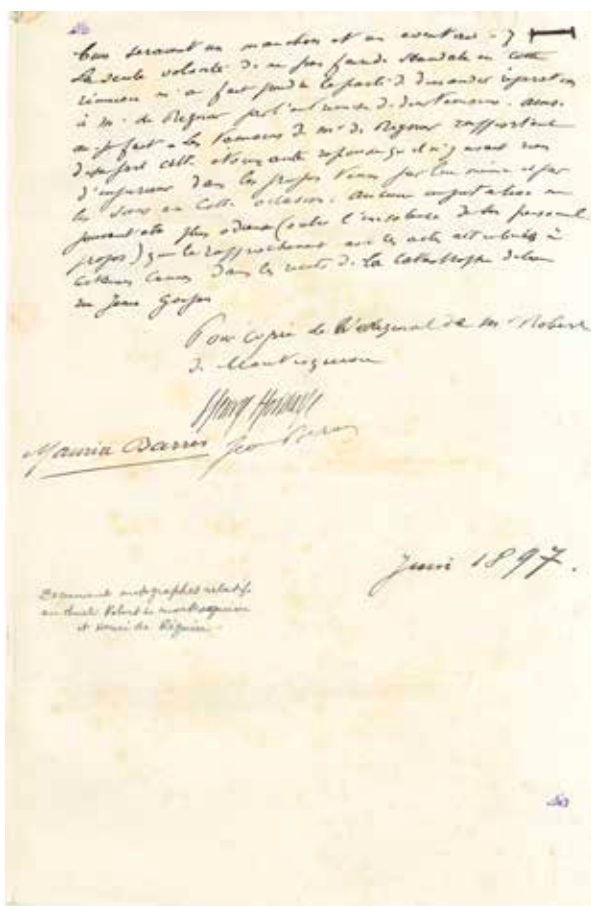 bien seraient un manchon et un éventail -
La seule volonté de ne pas faire de scandale en cette
réunion m'a fait prendre le parti de demander réparation
à M. de Régnier par l'entremise de deux témoins.
les témoins de Mr de Régnier rapportent
réponse qu'il n'y avait rien
d'injurieux dans les propos tenus par lui même et par
les siens en cette occasion. Aucune imputation ne
pouvant être plus odieuse (outre l'insolence de tels
propos) que le rapprochement avec les actes attribués à
certaines cannes dans les récits de la catastrophe de la
rue Jean Goujon
Pour copie de l'original de Mr Robert
de Montesquiou
Maurice Barrès
Juin 1897.
Document autographes relatifs
au duel Robert de Montesquiou
et Henri de Régnier